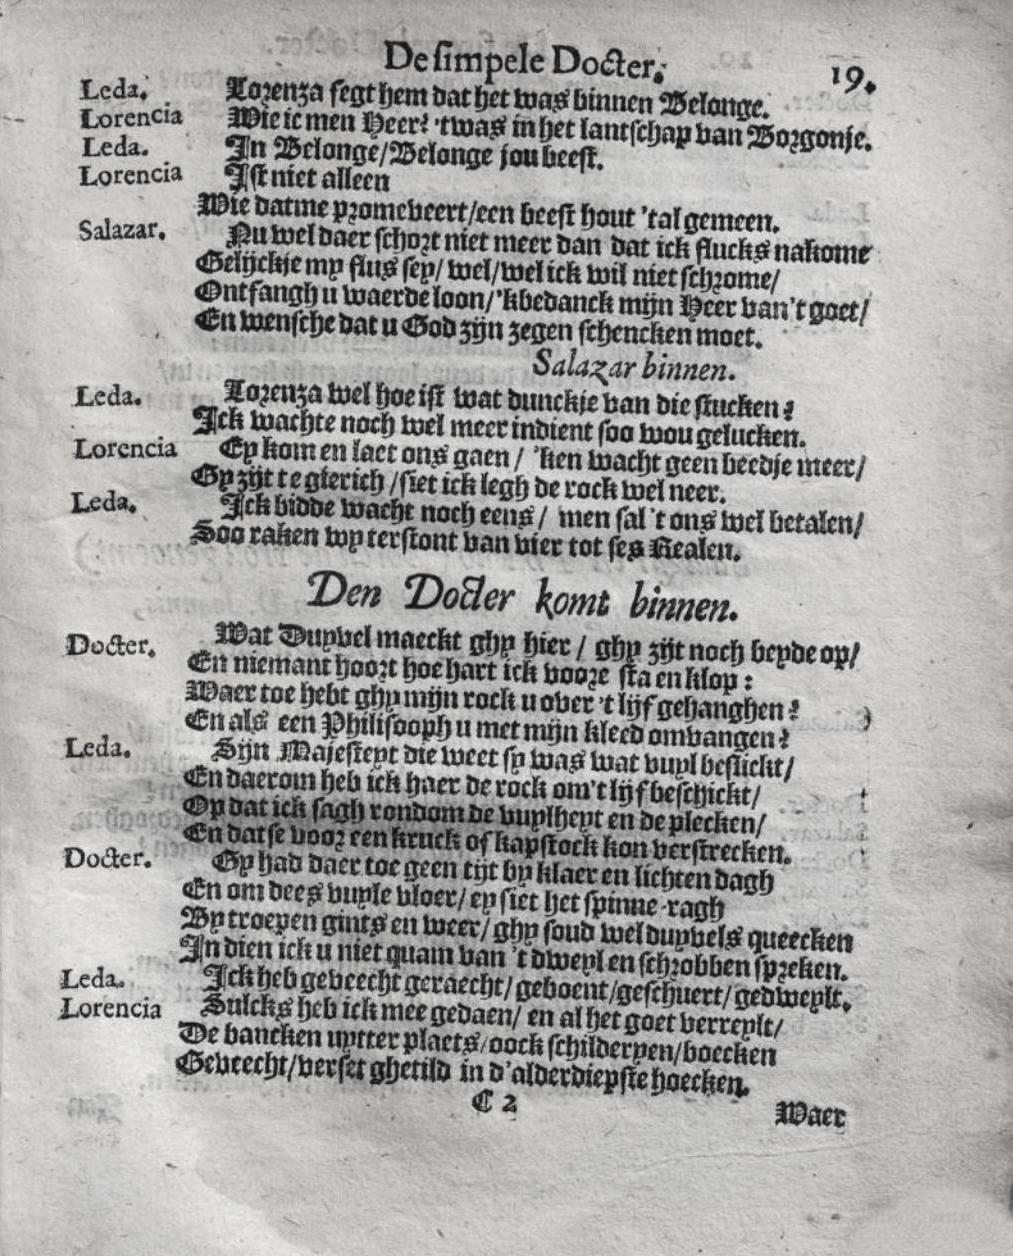 De simpele Docter. 19.
Leda. Lorenza segt hem dat het was binnen Belonge.
Lorencia Wie ic men Heer? 'twas in het lantschap van Borgonje.
Leda. In Belonge/Belonge jou beest.
Lorencia Ist niet alleen
Wie datme promeveert/een beest hout 'tal gemeen.
Salazar. Nu wel daer schort niet meer dan dat ick flucks nakome
Gelijckje my flus sey/ wel/wel ick wil niet schrome/
Ontfangh u waerde loon/'kbedanck mijn Heer van't goet/
En wensche dat u God zijn zegen schencken moet.
Salazar binnen.
Leda. Lorenza wel hoe ist wat dunckje van die stucken?
Ick wachte noch wel meer indient soo wou gelucken.
Lorencia Ey kom en laet ons gaen / 'ken wacht geen beedje meer/
Gy zijt te gierich /siet ick legh de rock wel neer.
Leda. Ick bidde wacht noch eens/ men sal 't ons wel betalen/
Soo raken wy terstont van vier tot ses Realen.
Den Docter komt binnen.
Docter. Wat Duyvel maeckt ghy hier / ghy zijt noch beyde op/
En niemant hoort hoe hart ick voore sta en klop:
Waer toe hebt ghy mijn rock u over 't lijf gehanghen?
En als een Philisooph u met mijn kleed omvangen?
Leda. Sijn Majesteyt die weet sy was wat vuyl beslickt/
En daerom heb ick haer de rock om't lijf beschickt/
Op dat ick sagh rondom de vuylheyt en de plecken/
En datse voor een kruck of kapstock kon verstrecken.
Docter. Gy had daer toe geen tijt by klaer en lichten dagh
En om dees vuyle vloer/ ey siet het spinne-ragh
By troepen gints en weer/ ghy soud wel duyvels queecken
In dien ick u niet quam van 't dweyl en schrobben spreken.
Leda. Ick heb geveecht geraecht/ geboent/geschuert/ gedweylt.
Lorencia Sulcks heb ick mee gedaen/ en al het goet verreylt/
De bancken uytter plaets/oock schilderyen/boecken
Geveecht/verset ghetild in d'alderdiepste hoecken.
C 2 Waer